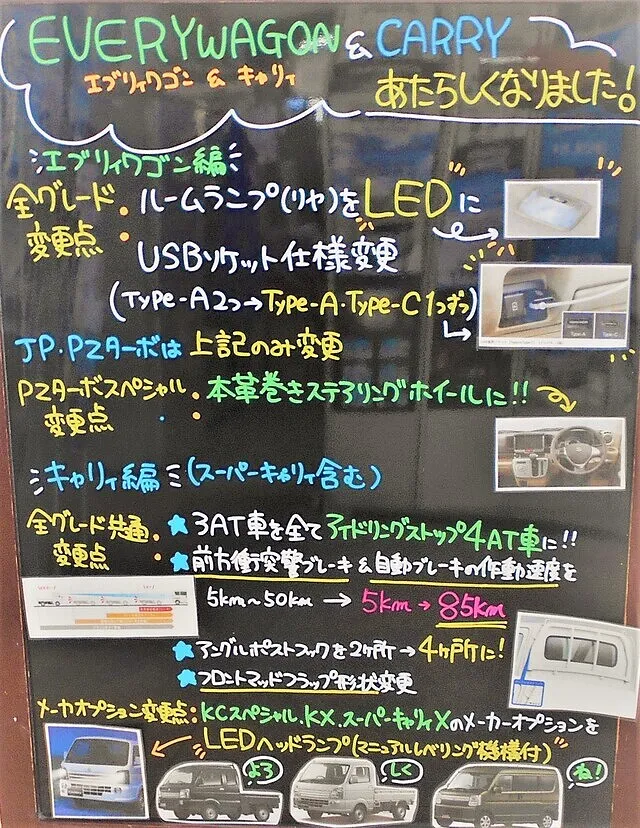 EVERYWAGON & CARRY
エブリィワゴン & キャリィ
あたらしくなりました!
エブリィワゴン編
全グレード変更点:
ルームランプ(リヤ)をLEDに
USBソケット仕様変更
(Type-A2つ→Type-A・Type-C1つずつ)
Type-A Type-C
JP・PZターボは上記のみ変更
PZターボスペシャル変更点:
本革巻きステアリングホイールに!!
キャリィ編 (スーパーキャリィ含む)
全グレード共通変更点:
★3AT車を全てアイドリングストップ4AT車に!!
★前方衝突警ブレーキ&自動ブレーキの作動速度を
5km〜50km → 5km→85km
★アングルポストフックを2ヶ所→4ヶ所に!
★フロントマッドフラップ形状変更
メーカオプション変更点:KCスペシャル.KX.スーパーキャリィXのメーカーオプションを
LEDヘッドランプ(マニュアルレベリング機構付)
よろ
しく
ね!